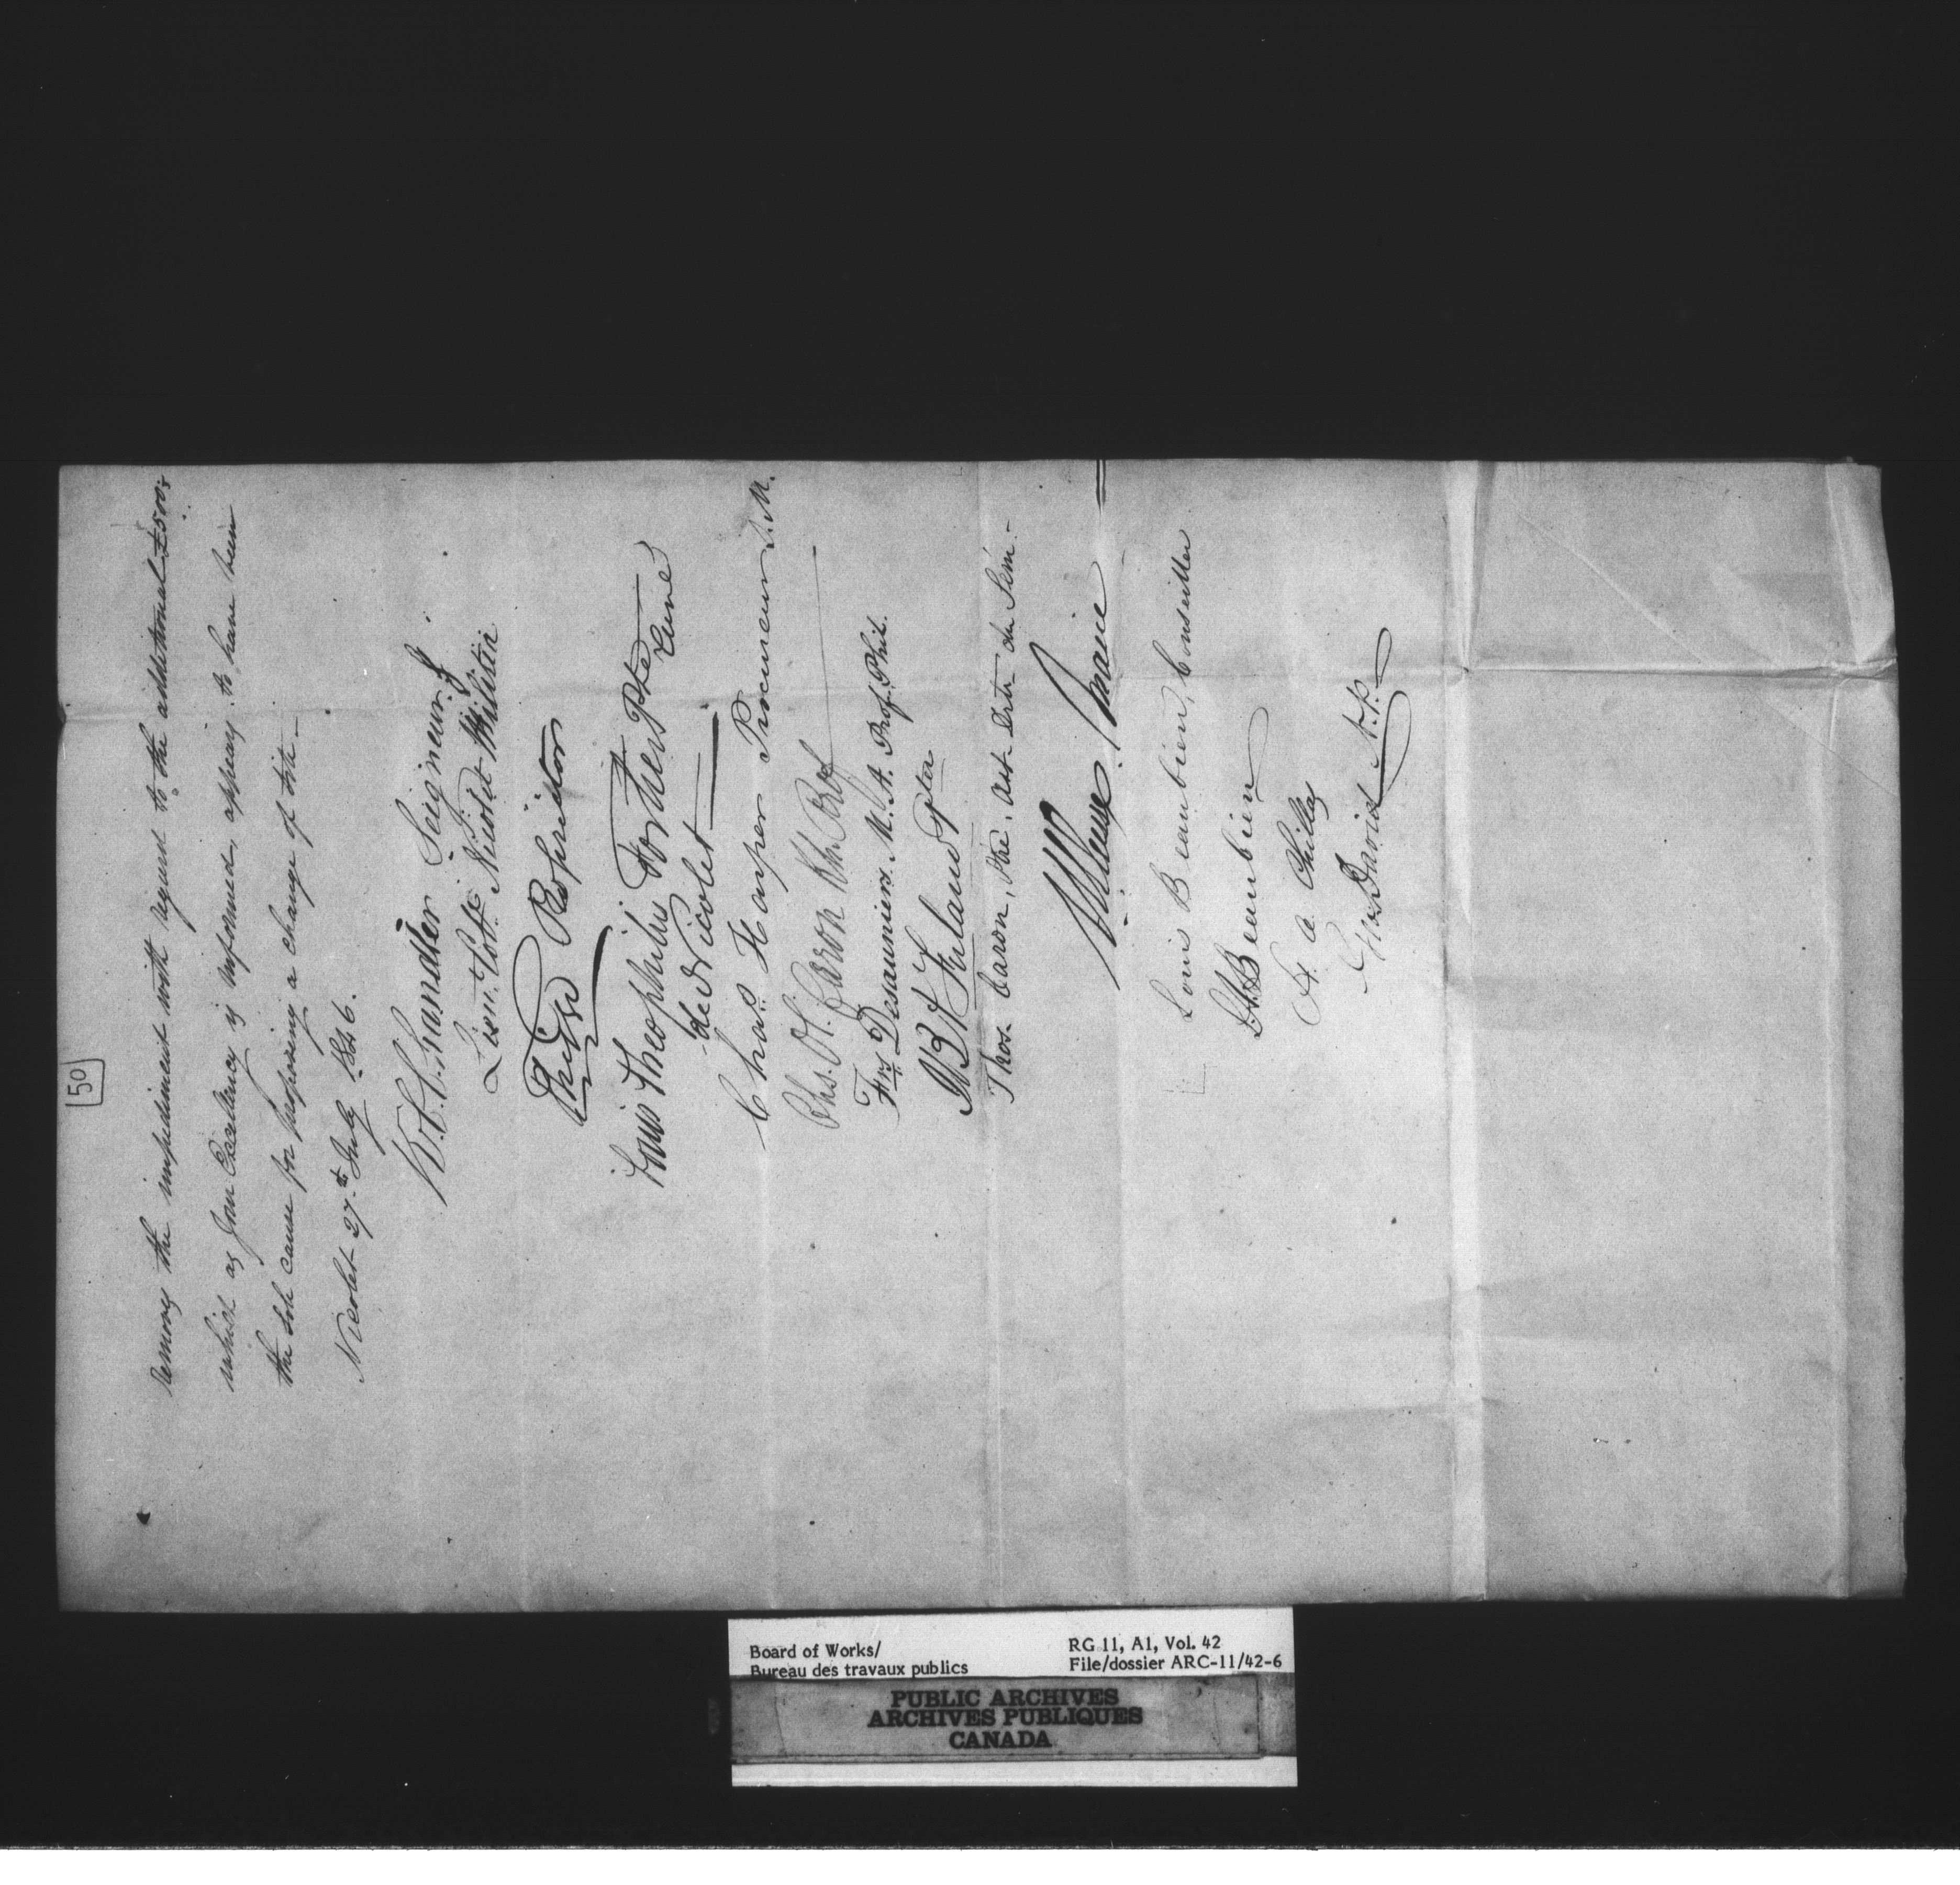 50
removes the impediment with regard to the additional £500;
which as Your Excellency is informed, appears to have been
the sole cause for proposing a change of site –
Nicolet 27th July 1846.
K.C. Chandler Seigneur &
Lieut. Coll. Nicolet Militia
Proprietor
Louis Théophilus Fortier Ptre Curé
de Nicolet
Chas. Harper Procureur S.N.
Chs. O. Caron Ptr. Prof
Frs Desauniers M. A. Prof. Phil.
J B A Ferland Ptre
Thos. Caron, Ptre, Ast. Dirtr du Sém. –
Maire
Louis Beaubien, Conseiller
Beaubien
David N.P.
Board of Works/
Bureau des travaux publics
RG 11, A1, Vol. 42
File/dossier ARC-11/42-6
PUBLIC ARCHIVES
ARCHIVES PUBLIQUES
CANADA